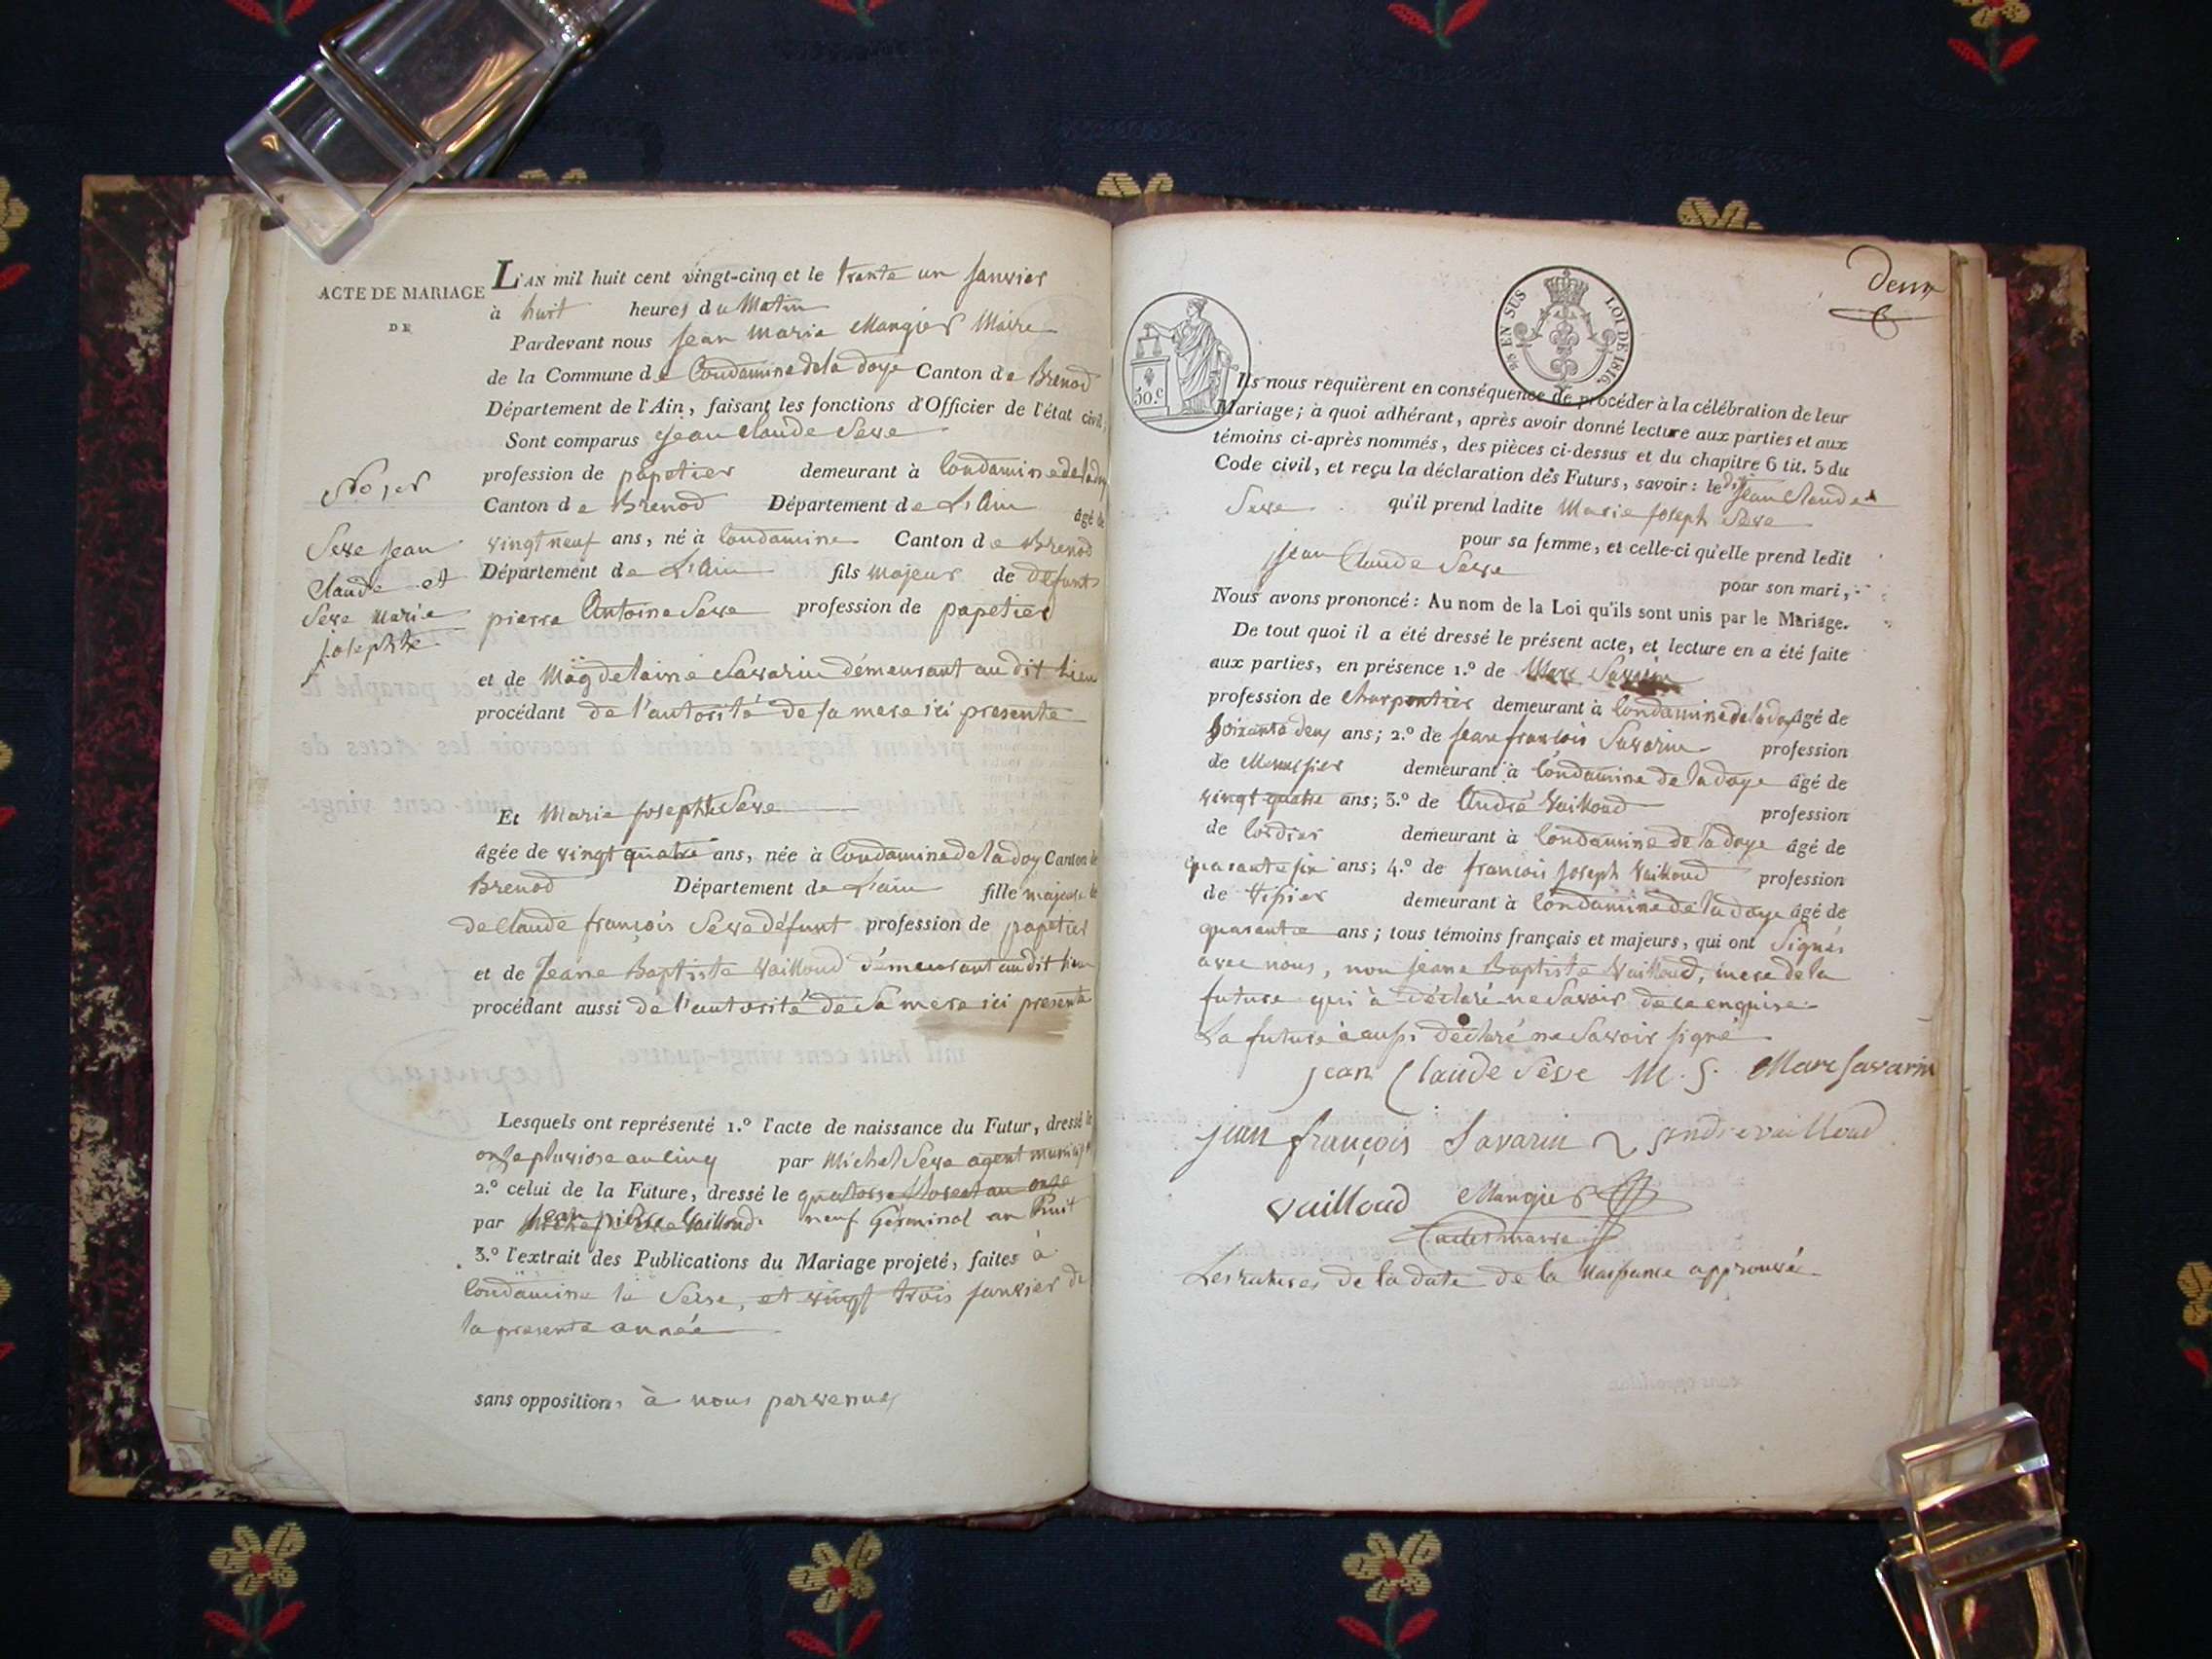 ACTE DE MARIAGE
DE
No 1er
Seve Jean
Claude et
Seve Marie
josephte
L'AN mil huit cent vingt-cinq et le trente un janvier
à huit heures du Matin
Pardevant nous Jean Marie Mangier Maire
de la Commune de Condamine de la doye Canton de Brenod
Département de l'Ain, faisant les fonctions d'Officier de l'état civil,
Sont comparus Jean Claude Seve
profession de papetier demeurant à Condamine de la doy
Canton de Brenod Département de L'Ain âgé de
vingt neuf ans, né à Condamine Canton de Brenod
Département de L'Ain fils majeur de défunt
pierre Antoine Seve profession de papetier
et de Magdelaine Savarin démeurant au dit lieu
procédant de l'autorité de sa mere ici presente
Et Marie Josephte Seve
âgée de vingt quatre ans, née à Condamine de la doy Canton de
Brenod Département de L'ain fille majeure de
de Claude françois Seve défunt profession de papetier
et de Jeane Baptiste Vailloud démeurant au dit lieu
procédant aussi de l'autorité de Sa mere ici presente
Lesquels ont représenté 1.° l'acte de naissance du Futur, dressé le
onze pluviose an cinq par Michel Seve agent municipal
2.° celui de la Future, dressé le quatorze floreal an onze
par Jean pierre Vailloud. neuf Germinal an huit
3.° l'extrait des Publications du Mariage projeté, faites à
Condamine le Seise, et vingt trois janvier de
la presente année
sans opposition, à nous parvenues
deux
5/10 EN SUS LOI DE 1816.
50.c
Ils nous requièrent en conséquence de procéder à la célébration de leur
Mariage; à quoi adhérant, après avoir donné lecture aux parties et aux
témoins ci-après nommés, des pièces ci-dessus et du chapitre 6 tit. 5 du
Code civil, et reçu la déclaration des Futurs, savoir: le dit Jean Claude
Seve qu'il prend ladite Marie Joseph Seve
pour sa femme, et celle-ci qu'elle prend ledit
Jean Claude Seve pour son mari,
Nous avons prononcé: Au nom de la Loi qu'ils sont unis par le Mariage.
De tout quoi il a été dressé le présent acte, et lecture en a été faite
aux parties, en présence 1.° de Marc Savarin
profession de Charpentier demeurant à Condamine de la doy âgé de
Soixante deux ans; 2.° de Jean françois Savarin profession
de Menusier demeurant à Condamine de la doye âgé de
vingt quatre ans; 3.° de André Vailloud profession
de Cordier demeurant à Condamine de la doye âgé de
quarante six ans; 4.° de françois Joseph Vailloud profession
de Tisier demeurant à Condamine de la doye âgé de
quarante ans; tous témoins français et majeurs, qui ont Signés
avec nous, non Jeane Baptiste Vailloud, mere de la
future qui à déclaré ne Savoir de ce enquise.
La future à aussi déclaré ne Savoir signé
jean Claude Seve M. S. Marc Savarin
jean françois Savarin andre vailloud
vailloud Mangier
Les ratures de la date de la Naissance approuvé